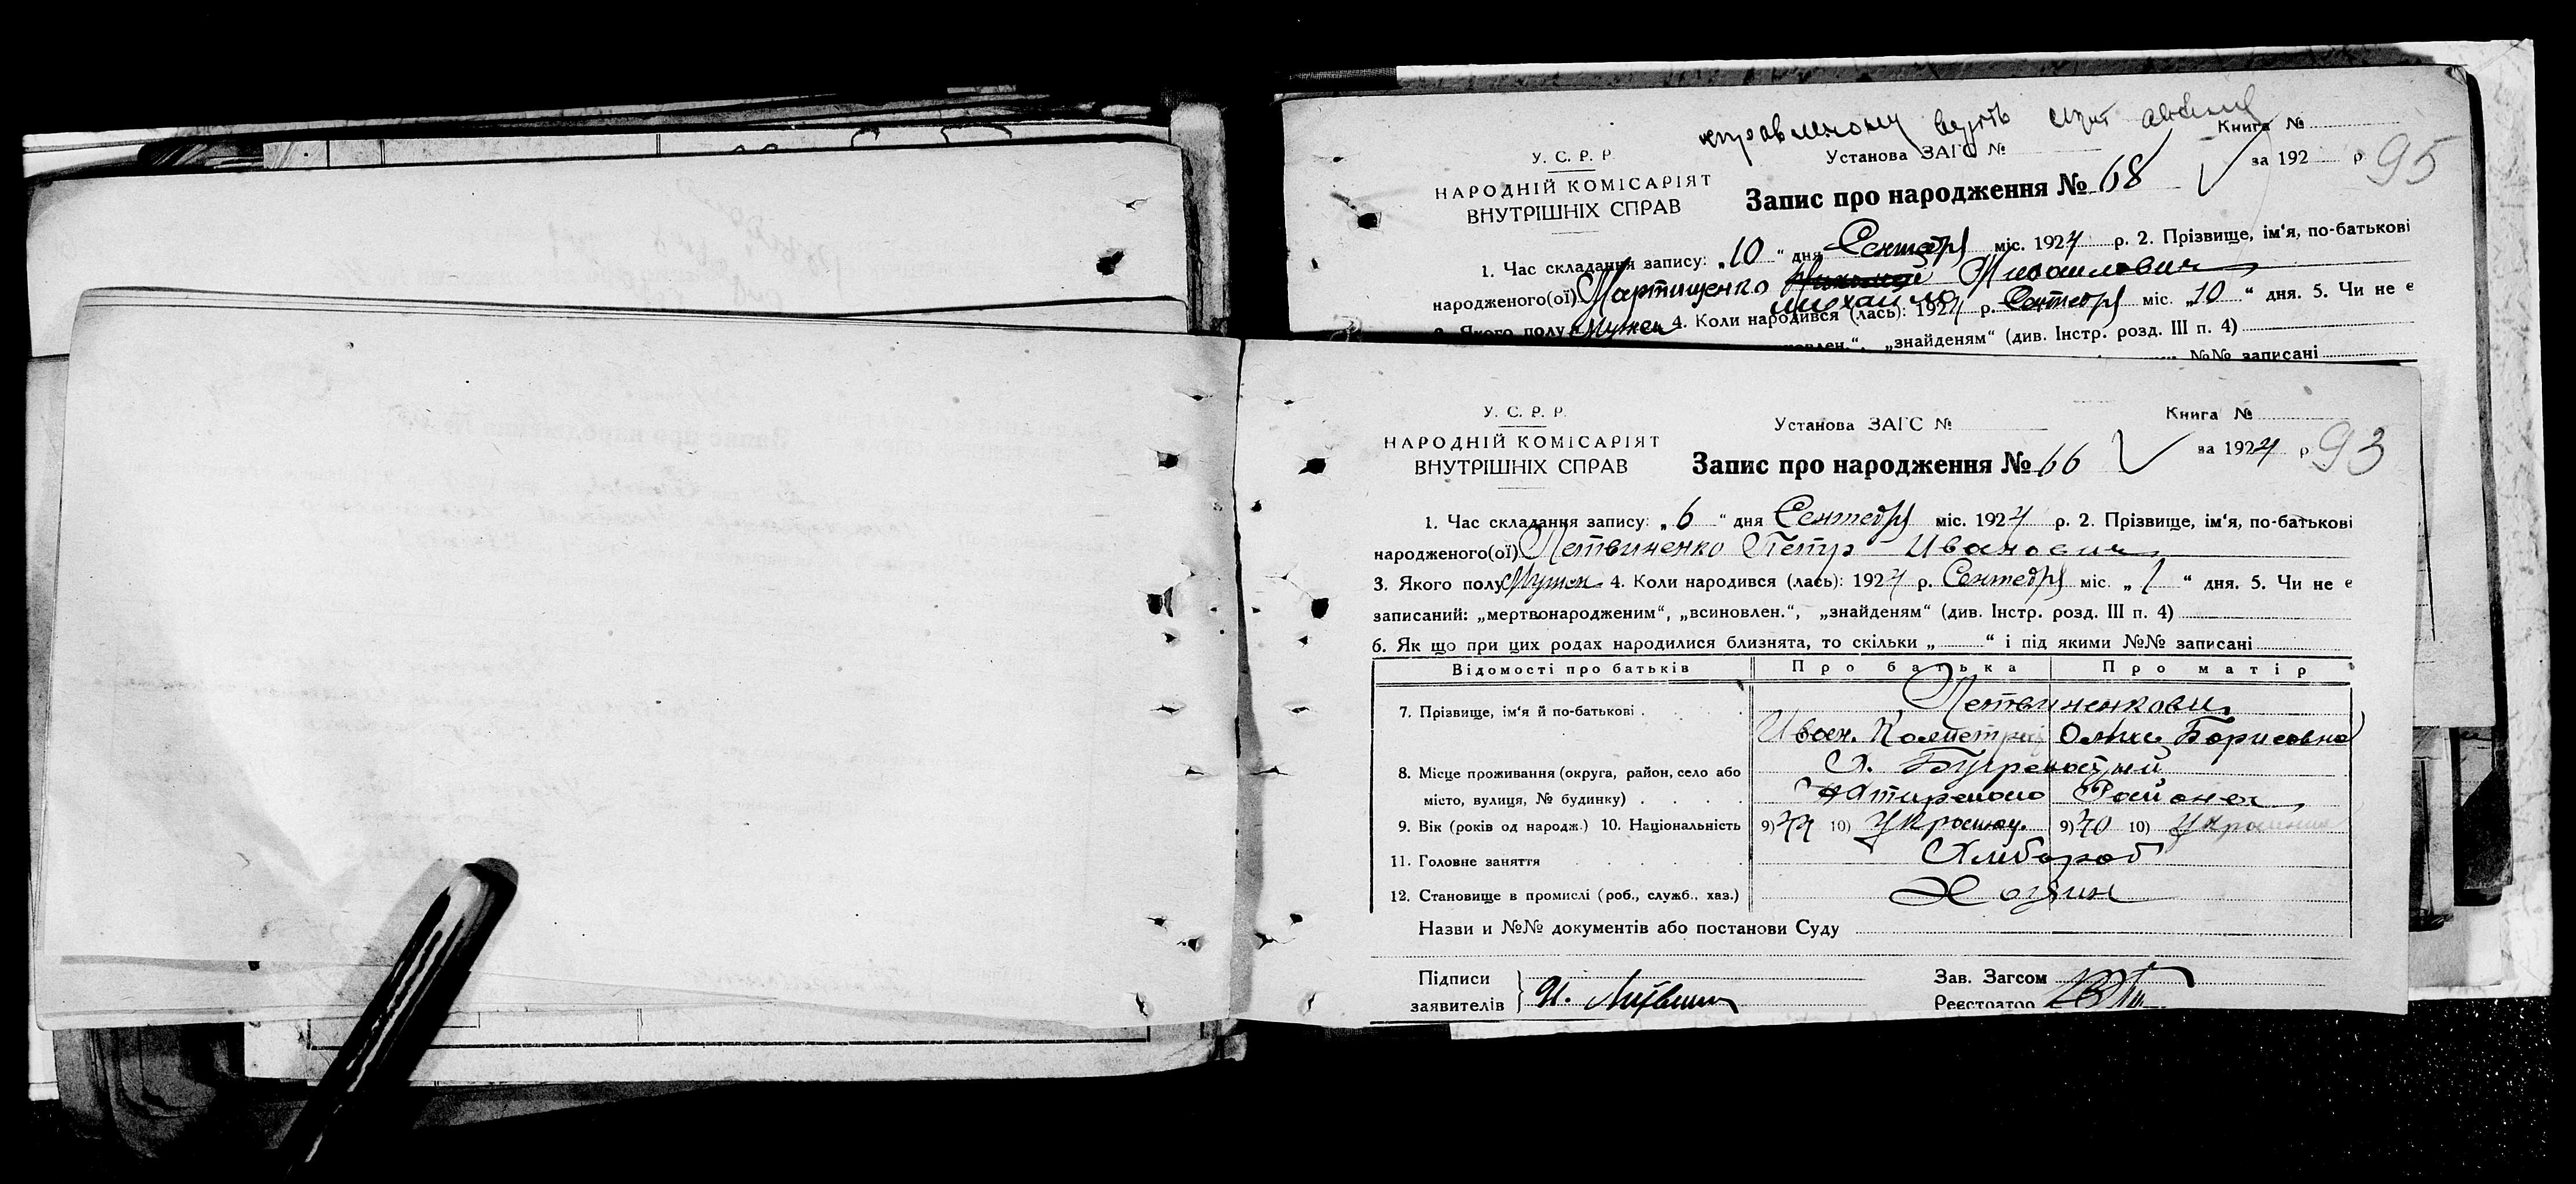 исправленому верить
У. С. Р. Р. Установа ЗАГС № Книга №
НАРОДНІЙ КОМІСАРІЯТ
ВНУТРІШНІХ СПРАВ
Запис про народження № 68 за 192 р 95
1. Час складання запису: „10“ дня Сентебр міс. 1924 р. 2. Прізвище, ім'я, по-батькові
народженого(ої) Мартищенко Михаилович
михаило
3. Якого полу Мужск 4. Коли народився (лась): 1924 р. Сентебр міс. „10“ дня. 5. Чи не є
влен.“, „знайденям“ (див. Інстр. розд. III п. 4)
№№ записані
У. С. Р. Р. Установа ЗАГС № Книга №
НАРОДНІЙ КОМІСАРІЯТ
ВНУТРІШНІХ СПРАВ
Запис про народження № 66 за 1924 р 93
1. Час складання запису: „6“ дня Сентебр міс. 1924 р. 2. Прізвище, ім'я, по-батькові
народженого(ої) Летвиненко Петр Иванович
3. Якого полу Мужск 4. Коли народився (лась): 1924 р. Сентебр міс. „1“ дня. 5. Чи не є
записаний: „мертвонародженим“, „всиновлен.“, „знайденям“ (див. Інстр. розд. III п. 4)
6. Як що при цих родах народилися близнята, то скільки „ “ і під якими №№ записані
Відомості про батьків Про батька Про матір
7. Прізвище, ім'я й по-батькові . Летвиненкови
Иван. Борисовна
8. Місце проживання (округа, район, село або Х.
місто, вулиця, № будинку) . . . . Района
9. Вік (років од народж.) 10. Національність 9) 44 10) Украинц. 9) 40 10)
11. Головне заняття Хлибароб
12. Становище в промислі (роб., служб., хаз.) Хозяин
Назви и №№ документів або постанови Суду
Підписи Зав. Загсом
заявителів И. Литвин Реєстратор